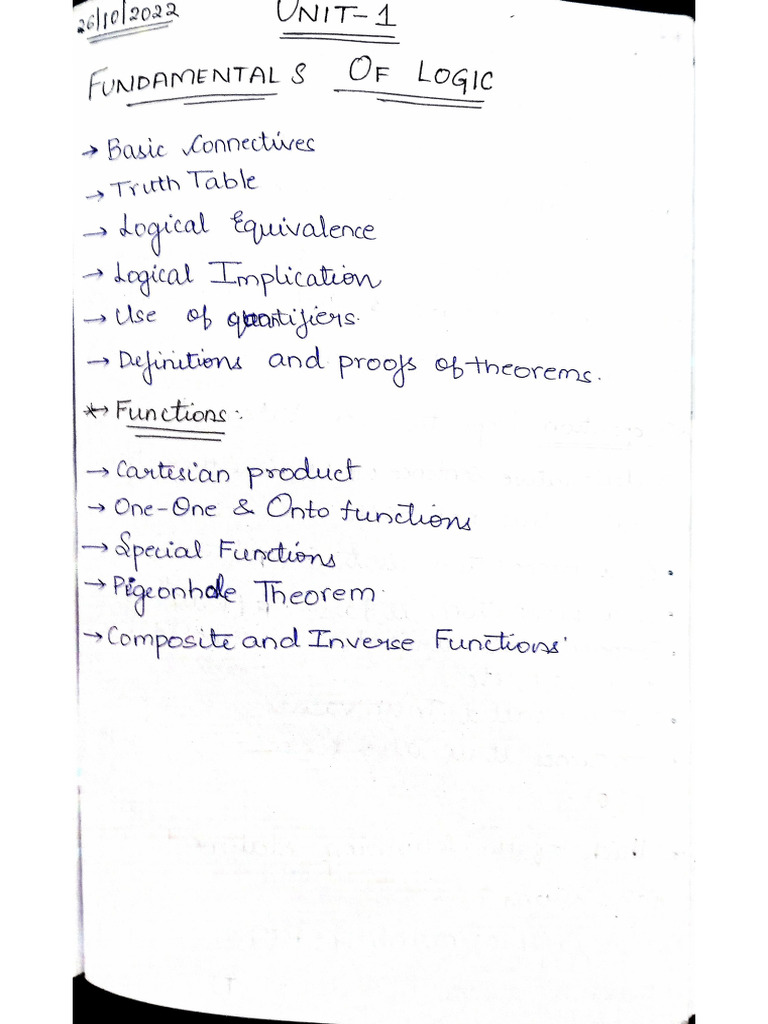 26/10/2022
UNIT-1
FUNDAMENTALS OF LOGIC
→ Basic Connectives
→ Truth Table
→ Logical Equivalence
→ Logical Implication
→ Use of quantifiers.
→ Definitions and proofs of theorems.
*→ Functions:
→ Cartesian product
→ One-One & Onto functions
→ Special Functions
→ Pigeonhole Theorem.
→ Composite and Inverse Functions.